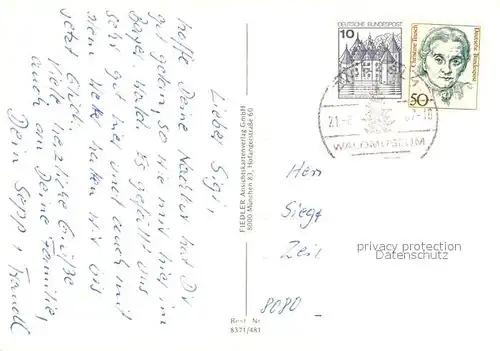 Lieber Sigi,
hoffe Deine Nachkur hat Dir
gut getan, so wie mir hier im
Bayer. Wald. Es gefällt uns
sehr gut hier und auch mit
dem Wetter hatten wir bis
jetzt Glück.
Viele herzliche Grüße
auch an Deine Familie,
Dein Sepp +
FIEDLER Ansichtskartenverlag GmbH
8000 München 83, Hofangerstraße 60
Best. Nr.
8371/481
DEUTSCHE BUNDESPOST
10
Christine Teusch
Deutsche Bundespost
50
21.-8.
WALDMUSEUM
Herrn
Siegf
Zeil
8080
privacy protection